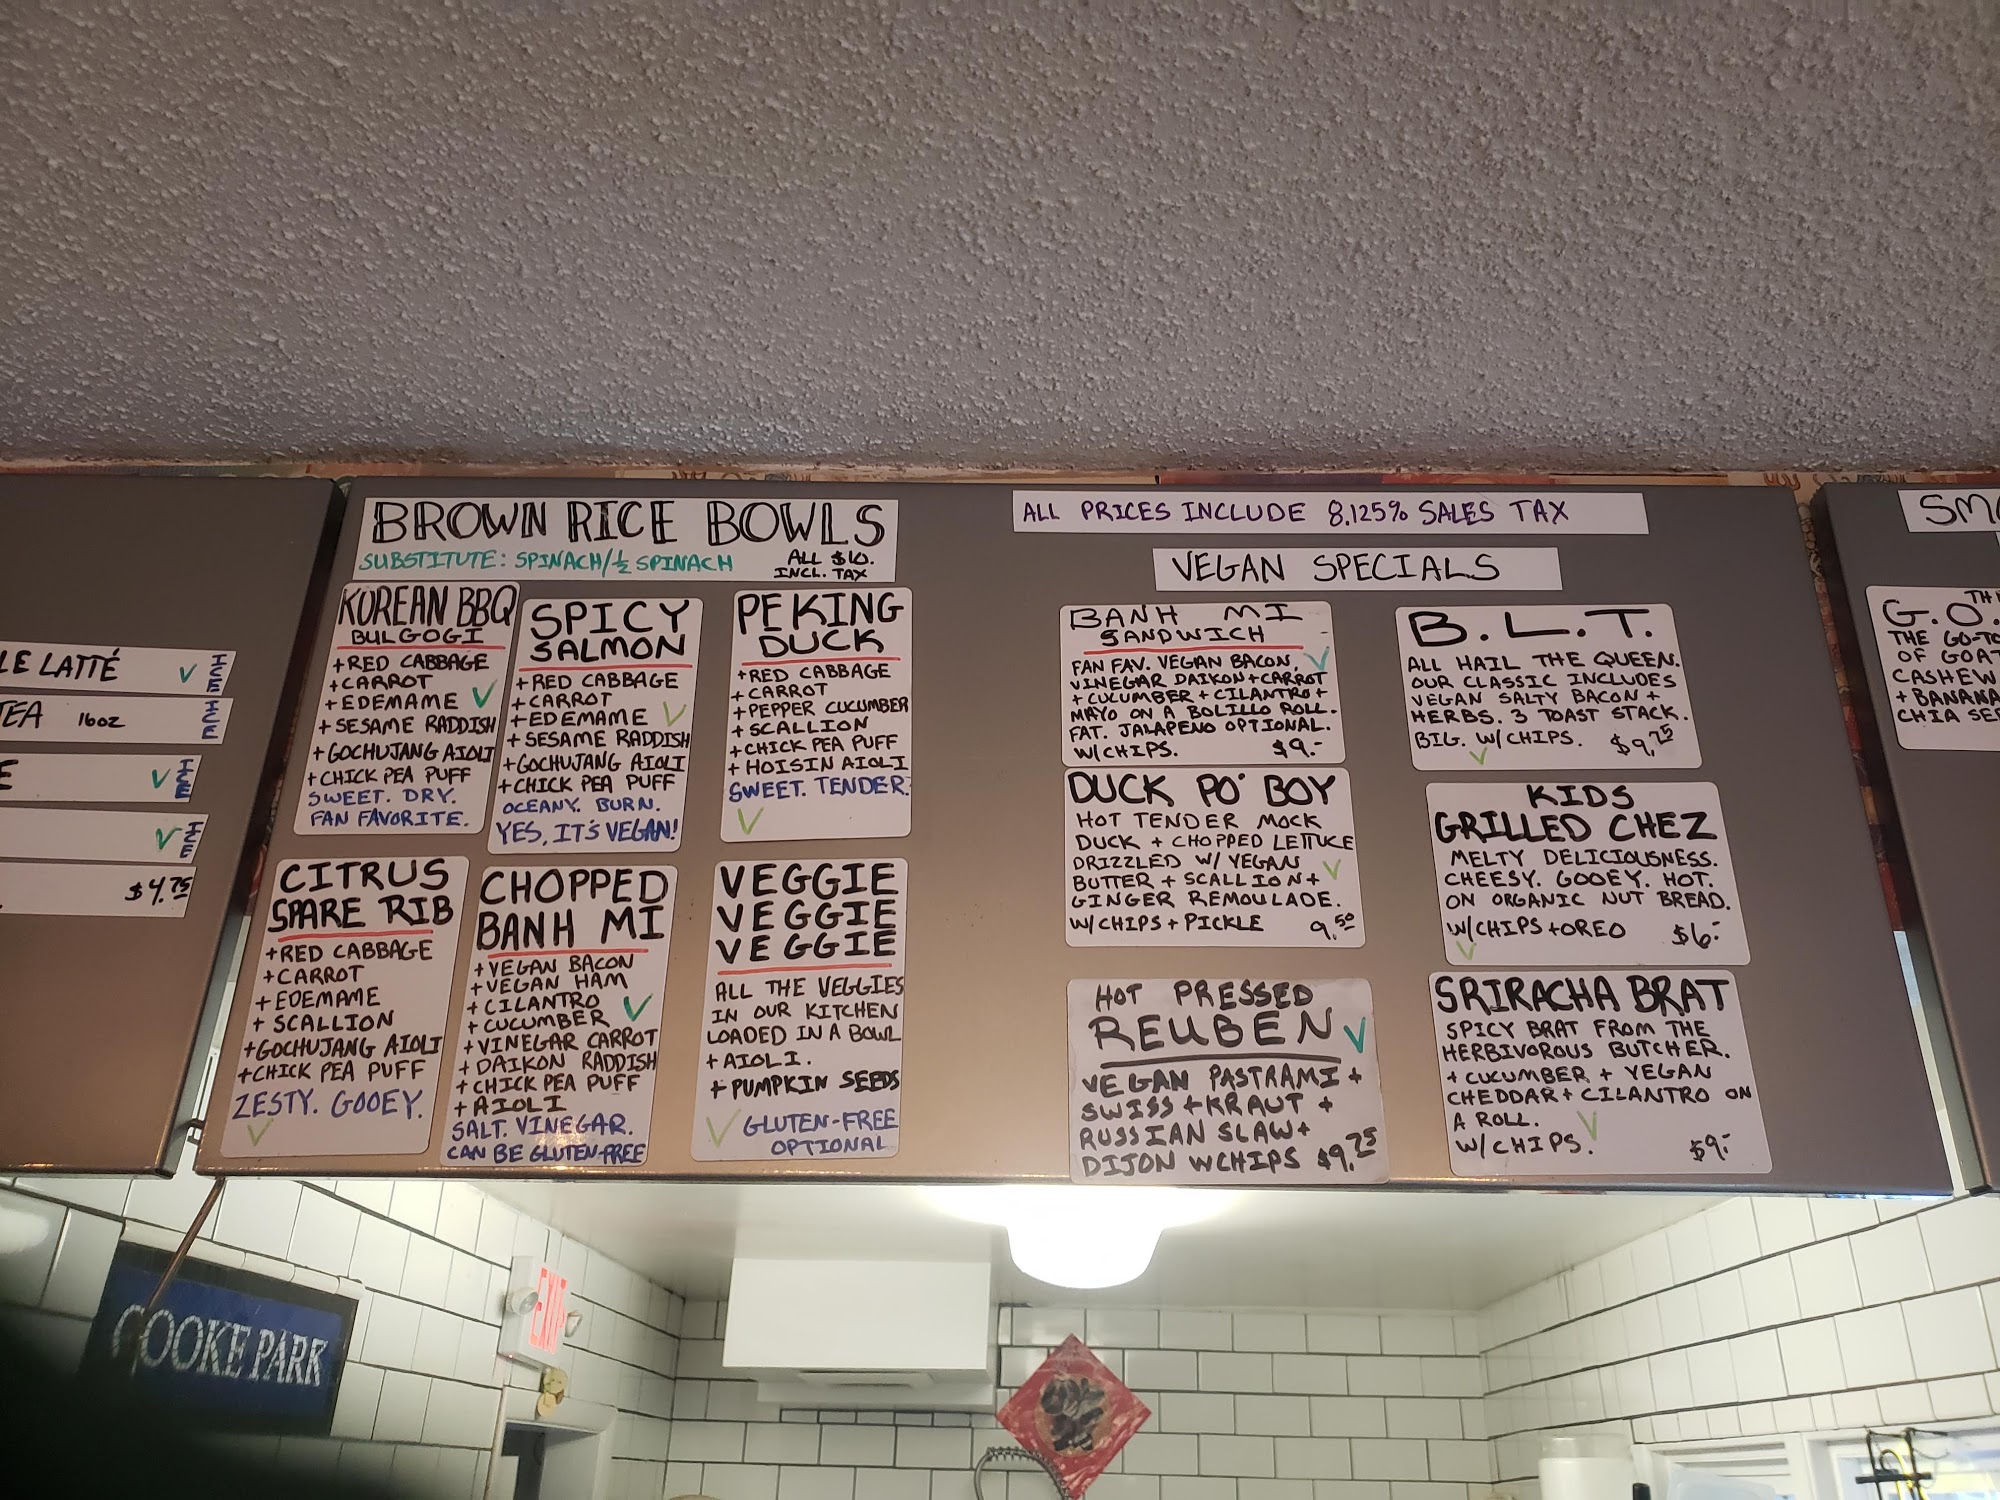 LE LATTÉ ✓ ICE
TEA 16oz ICE
E ✓ ICE
✓ ICE
$4.75
BROWN RICE BOWLS
SUBSTITUTE: SPINACH/½ SPINACH
ALL $10.
INCL. TAX
KOREAN BBQ
BULGOGI
+RED CABBAGE
+CARROT
+EDEMAME ✓
+SESAME RADDISH
+GOCHUJANG AIOLI
+CHICK PEA PUFF
SWEET. DRY.
FAN FAVORITE.
SPICY
SALMON
+RED CABBAGE
+CARROT
+EDEMAME ✓
+SESAME RADDISH
+GOCHUJANG AIOLI
+CHICK PEA PUFF
OCEANY. BURN.
YES, IT'S VEGAN!
PEKING
DUCK
+RED CABBAGE
+CARROT
+PEPPER CUCUMBER
+SCALLION
+CHICK PEA PUFF
+HOISIN AIOLI
SWEET. TENDER.
✓
CITRUS
SPARE RIB
+RED CABBAGE
+CARROT
+EDEMAME
+SCALLION
+GOCHUJANG AIOLI
+CHICK PEA PUFF
ZESTY. GOOEY.
✓
CHOPPED
BANH MI
+VEGAN BACON
+VEGAN HAM
+CILANTRO
+CUCUMBER ✓
+VINEGAR CARROT
+DAIKON RADDISH
+CHICK PEA PUFF
+AIOLI
SALT. VINEGAR.
CAN BE GLUTEN-FREE
VEGGIE
VEGGIE
VEGGIE
ALL THE VEGGIES
IN OUR KITCHEN
LOADED IN A BOWL
+AIOLI.
+PUMPKIN SEEDS
✓ GLUTEN-FREE
OPTIONAL
ALL PRICES INCLUDE 8.125% SALES TAX
VEGAN SPECIALS
BANH MI
SANDWICH
FAN FAV. VEGAN BACON, ✓
VINEGAR DAIKON+CARROT
+CUCUMBER+CILANTRO+
MAYO ON A BOLILLO ROLL.
FAT. JALAPENO OPTIONAL.
W/CHIPS. $9.-
DUCK PO' BOY
HOT TENDER MOCK
DUCK + CHOPPED LETTUCE
DRIZZLED W/ VEGAN ✓
BUTTER + SCALLION +
GINGER REMOULADE.
W/CHIPS+PICKLE 9.50
HOT PRESSED
REUBEN ✓
VEGAN PASTRAMI +
SWISS +KRAUT +
RUSSIAN SLAW+
DIJON WCHIPS $9.25
B.L.T.
ALL HAIL THE QUEEN.
OUR CLASSIC INCLUDES
VEGAN SALTY BACON +
HERBS. 3 TOAST STACK.
BIG. W/CHIPS. $9.75
✓
KIDS
GRILLED CHEZ
MELTY DELICIOUSNESS.
CHEESY. GOOEY. HOT.
ON ORGANIC NUT BREAD.
W/CHIPS+OREO $6.-
✓
SRIRACHA BRAT
SPICY BRAT FROM THE
HERBIVOROUS BUTCHER.
+CUCUMBER + VEGAN
CHEDDAR+CILANTRO ON
A ROLL. ✓
W/CHIPS. $9.-
SM
THE
G.O.
THE GO-TO
OF GOAT
CASHEW
+BANANA
CHIA SEE
COOKE PARK
EXIT